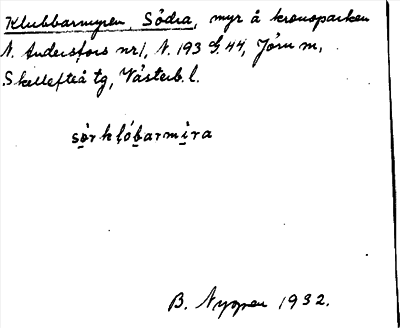 Klubbarmyren, Södra, myr å kronoparken
N. Andersfors nr 1, N. 193 G. 44, Jörn m,
Skellefteå tg, Västerb. l.
sö̱rkḷóḇarmi̱ra
B. Nygren 1932.